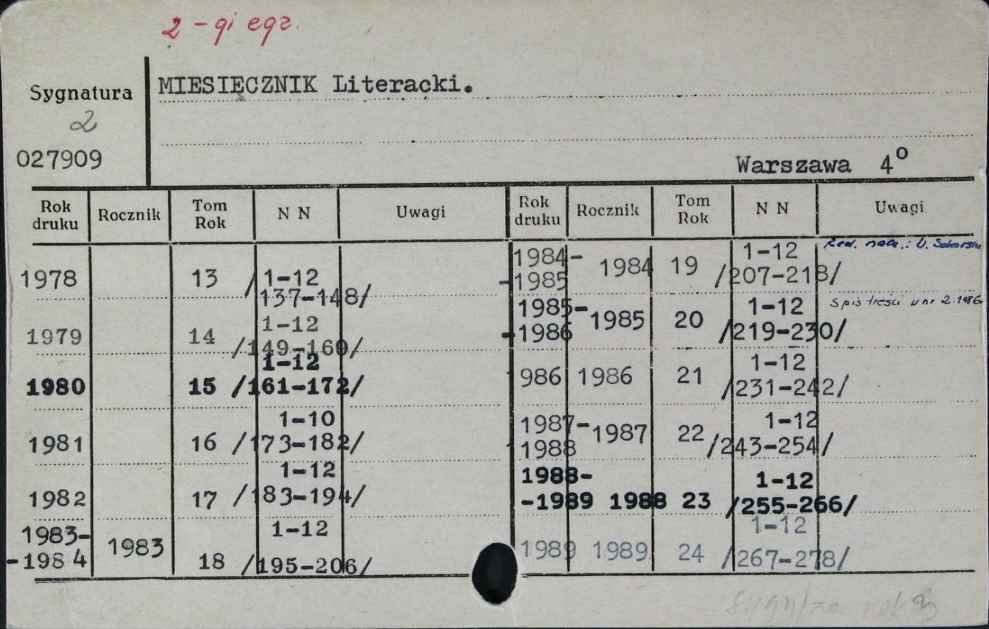 2-gi egz.
Sygnatura
2
027909
MIESIĘCZNIK Literacki.
Warszawa 4°
Rok druku Rocznik Tom Rok N N Uwagi
1978 13 /1-12 137-148/
1979 14 1-12 /149-160/
1980 15 1-12 /161-172/
1981 16 1-10 /173-182/
1982 17 1-12 /183-194/
1983--1984 1983 18 1-12 /195-206/
Rok druku Rocznik Tom Rok N N Uwagi
1984--1985 1984 19 1-12 /207-218/ Red. nacz.:
1985--1986 1985 20 1-12 /219-230/ Spis treści w nr 2.1986
986 1986 21 1-12 /231-242/
1987-1988 1987 22 1-12 /243-254/
1988--1989 1988 23 1-12 /255-266/
1989 1989 24 1-12 /267-278/